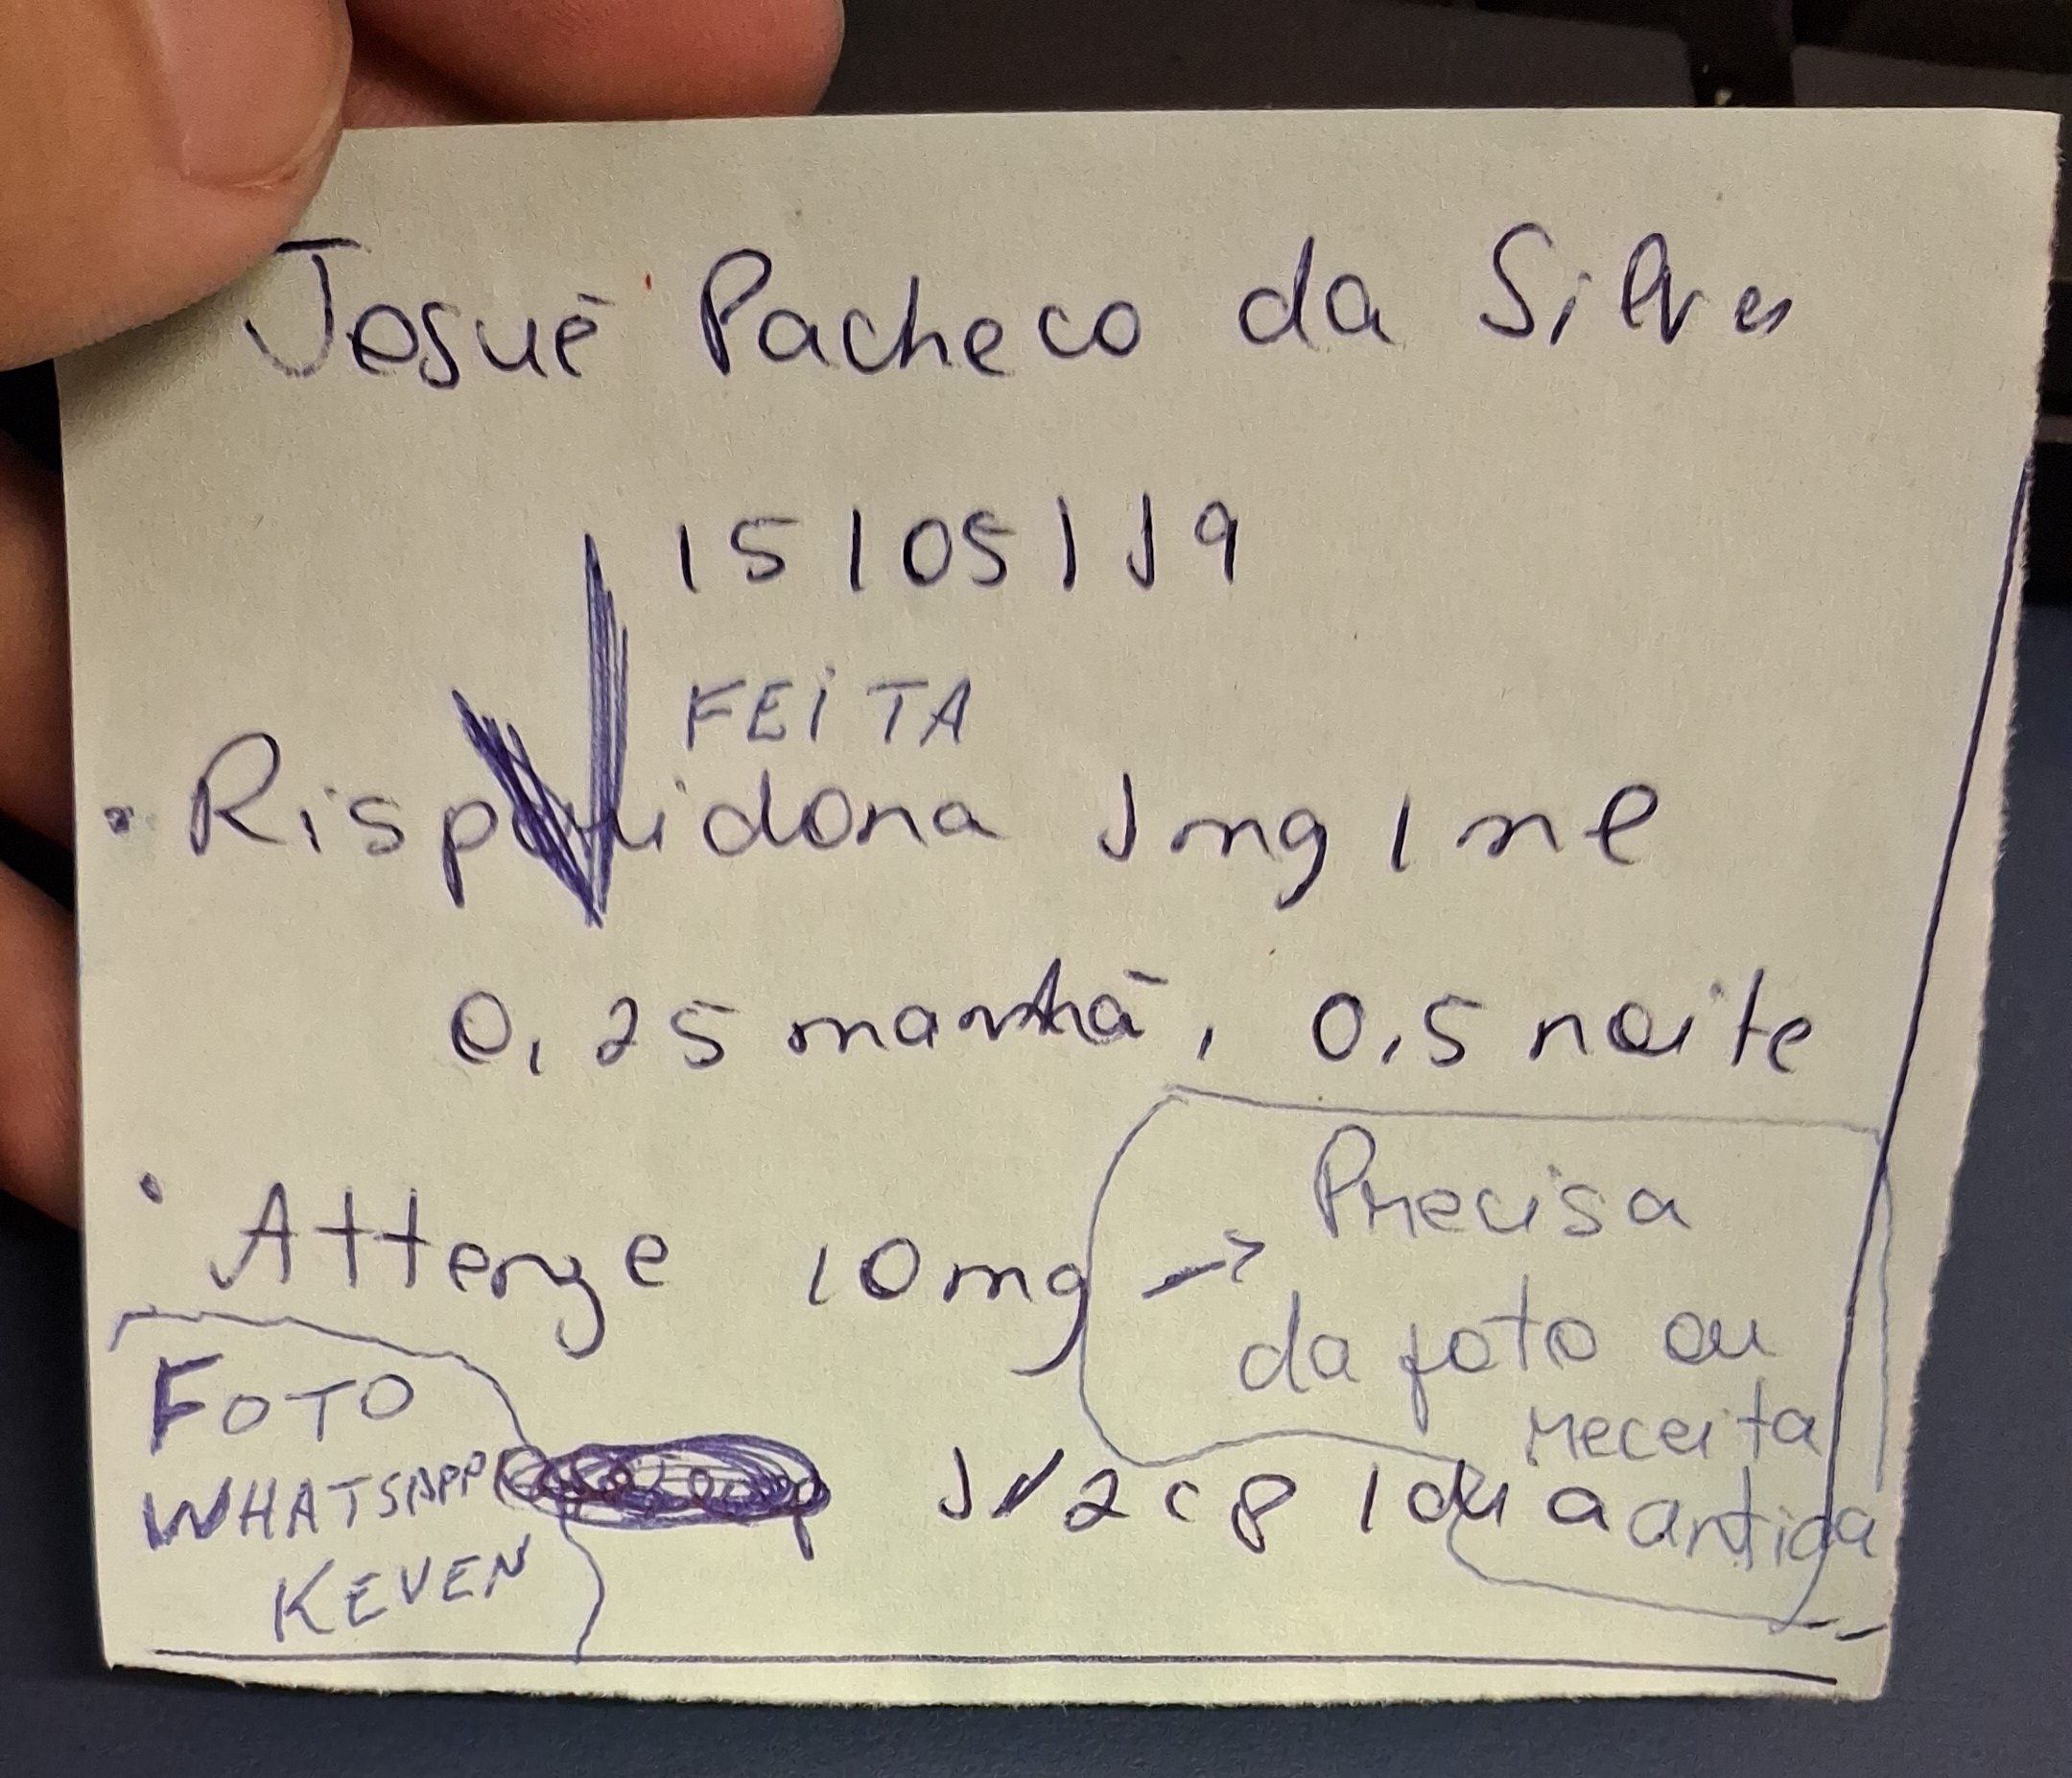 Josuē Pacheco da Silva
15/05/19
FEITA
• Risperidona 1mg/ml
0,25 manhã, 0,5 noite
• Attenze 10mg → Precisa
da foto ou
receita
antiga
1/2 cp / dia
FOTO
WHATSAPP
KEVEN